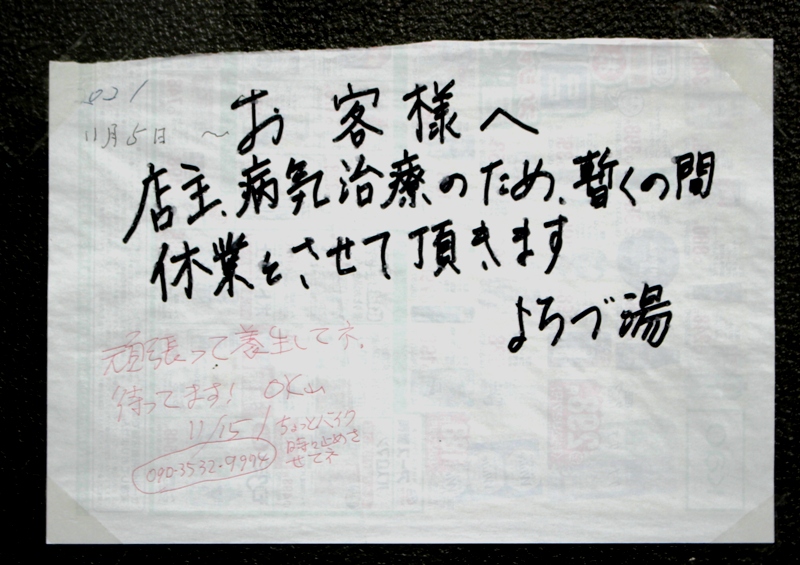 021
11月5日 〜
お客様へ
店主、病気治療のため、暫くの間
休業をさせて頂きます
よろづ湯
頑張って養生してネ、
待ってます! OKm
11/15
ちょっとバイク
時々止めさ
せてネ
090-3532-9974